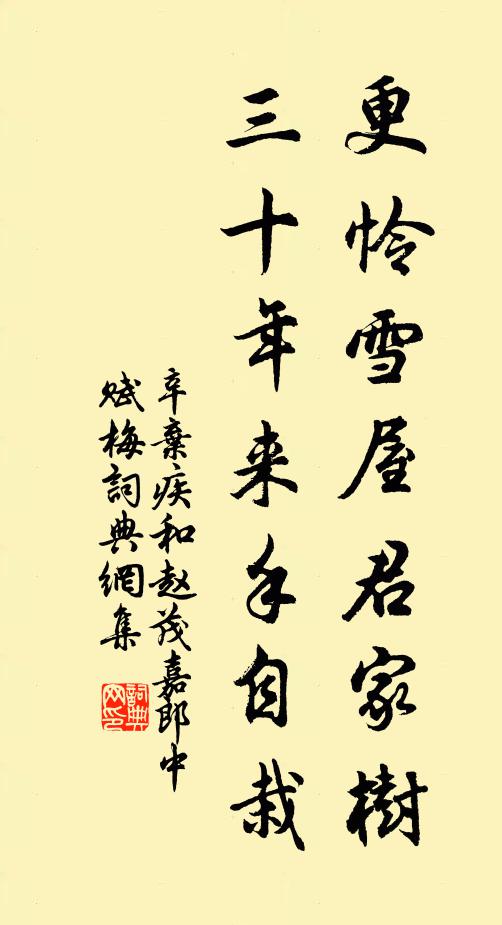 更怜雪屋君家樹
三十年来手自栽
辛棄疾和赵茂嘉郎中
赋梅詞典網集
詞典网印